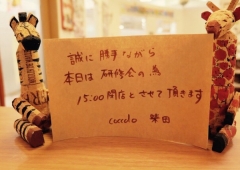 誠に 勝手ながら
本日は 研修会の為
15:00 閉店とさせて頂きます
cuccolo 柴田